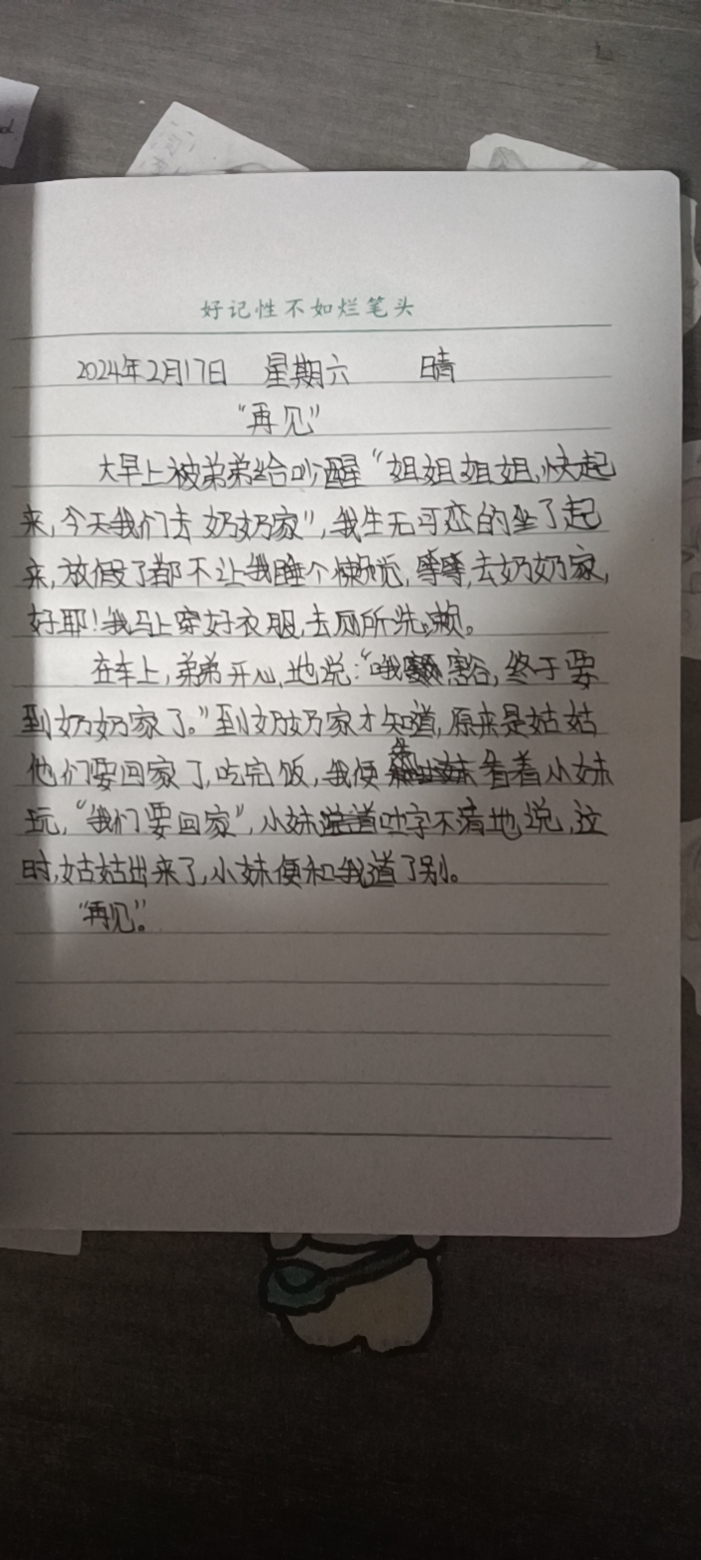 好记性不如烂笔头
2024年2月17日 星期六 晴
“再见”
大早上被弟弟给吵醒“姐姐姐姐,快起
来,今天我们去奶奶家”,我生无可恋的坐了起
来,放假了都不让我睡个懒觉,等等,去奶奶家,
好耶!我马上穿好衣服,去厕所洗漱。
在车上,弟弟开心地说:“哦豁,终于要
到奶奶家了。”到奶奶家才知道,原来是姑姑
他们要回家了,吃完饭,我便去看着小妹
玩,“我们要回家”,小妹吐字不清地说,这
时,姑姑出来了,小妹便和我道了别。
“再见”。